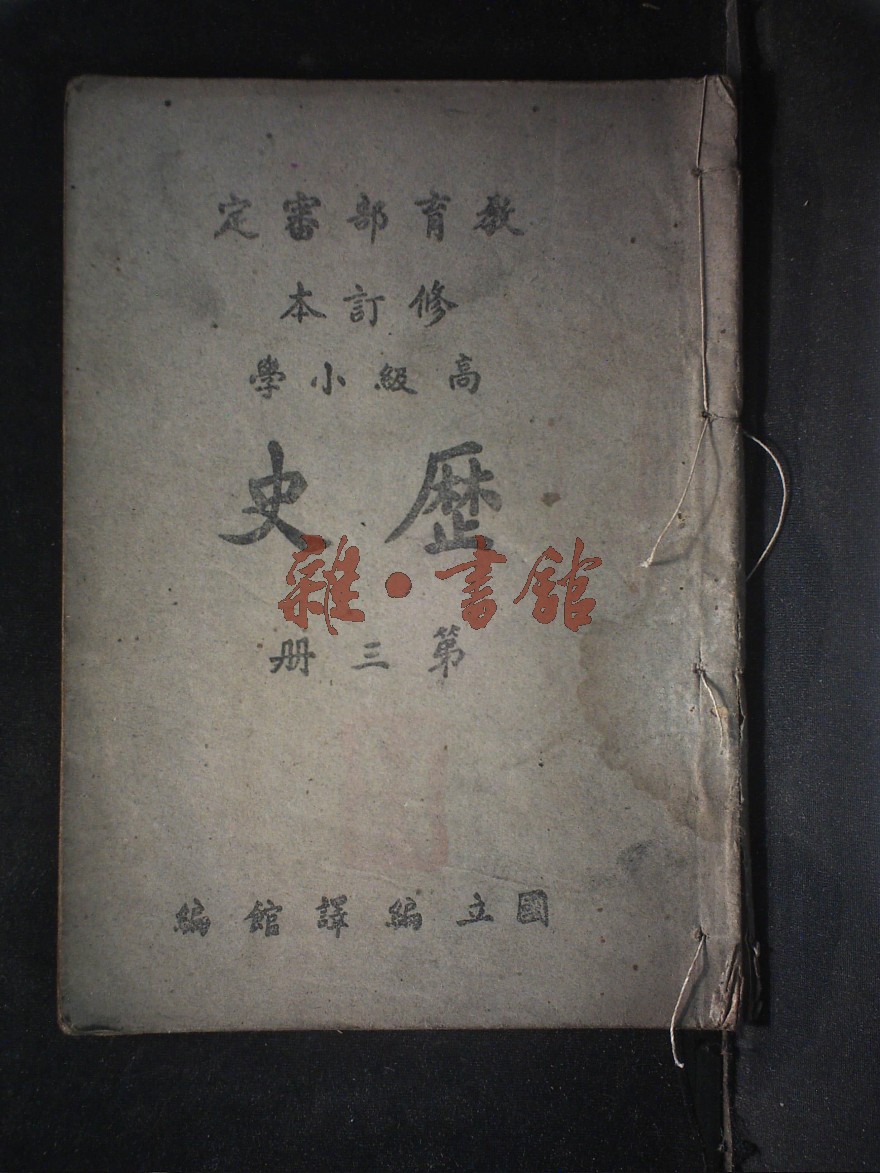 教育部審定
修訂本
高級小學
歷史
雜·書館
第三冊
國立編譯館編